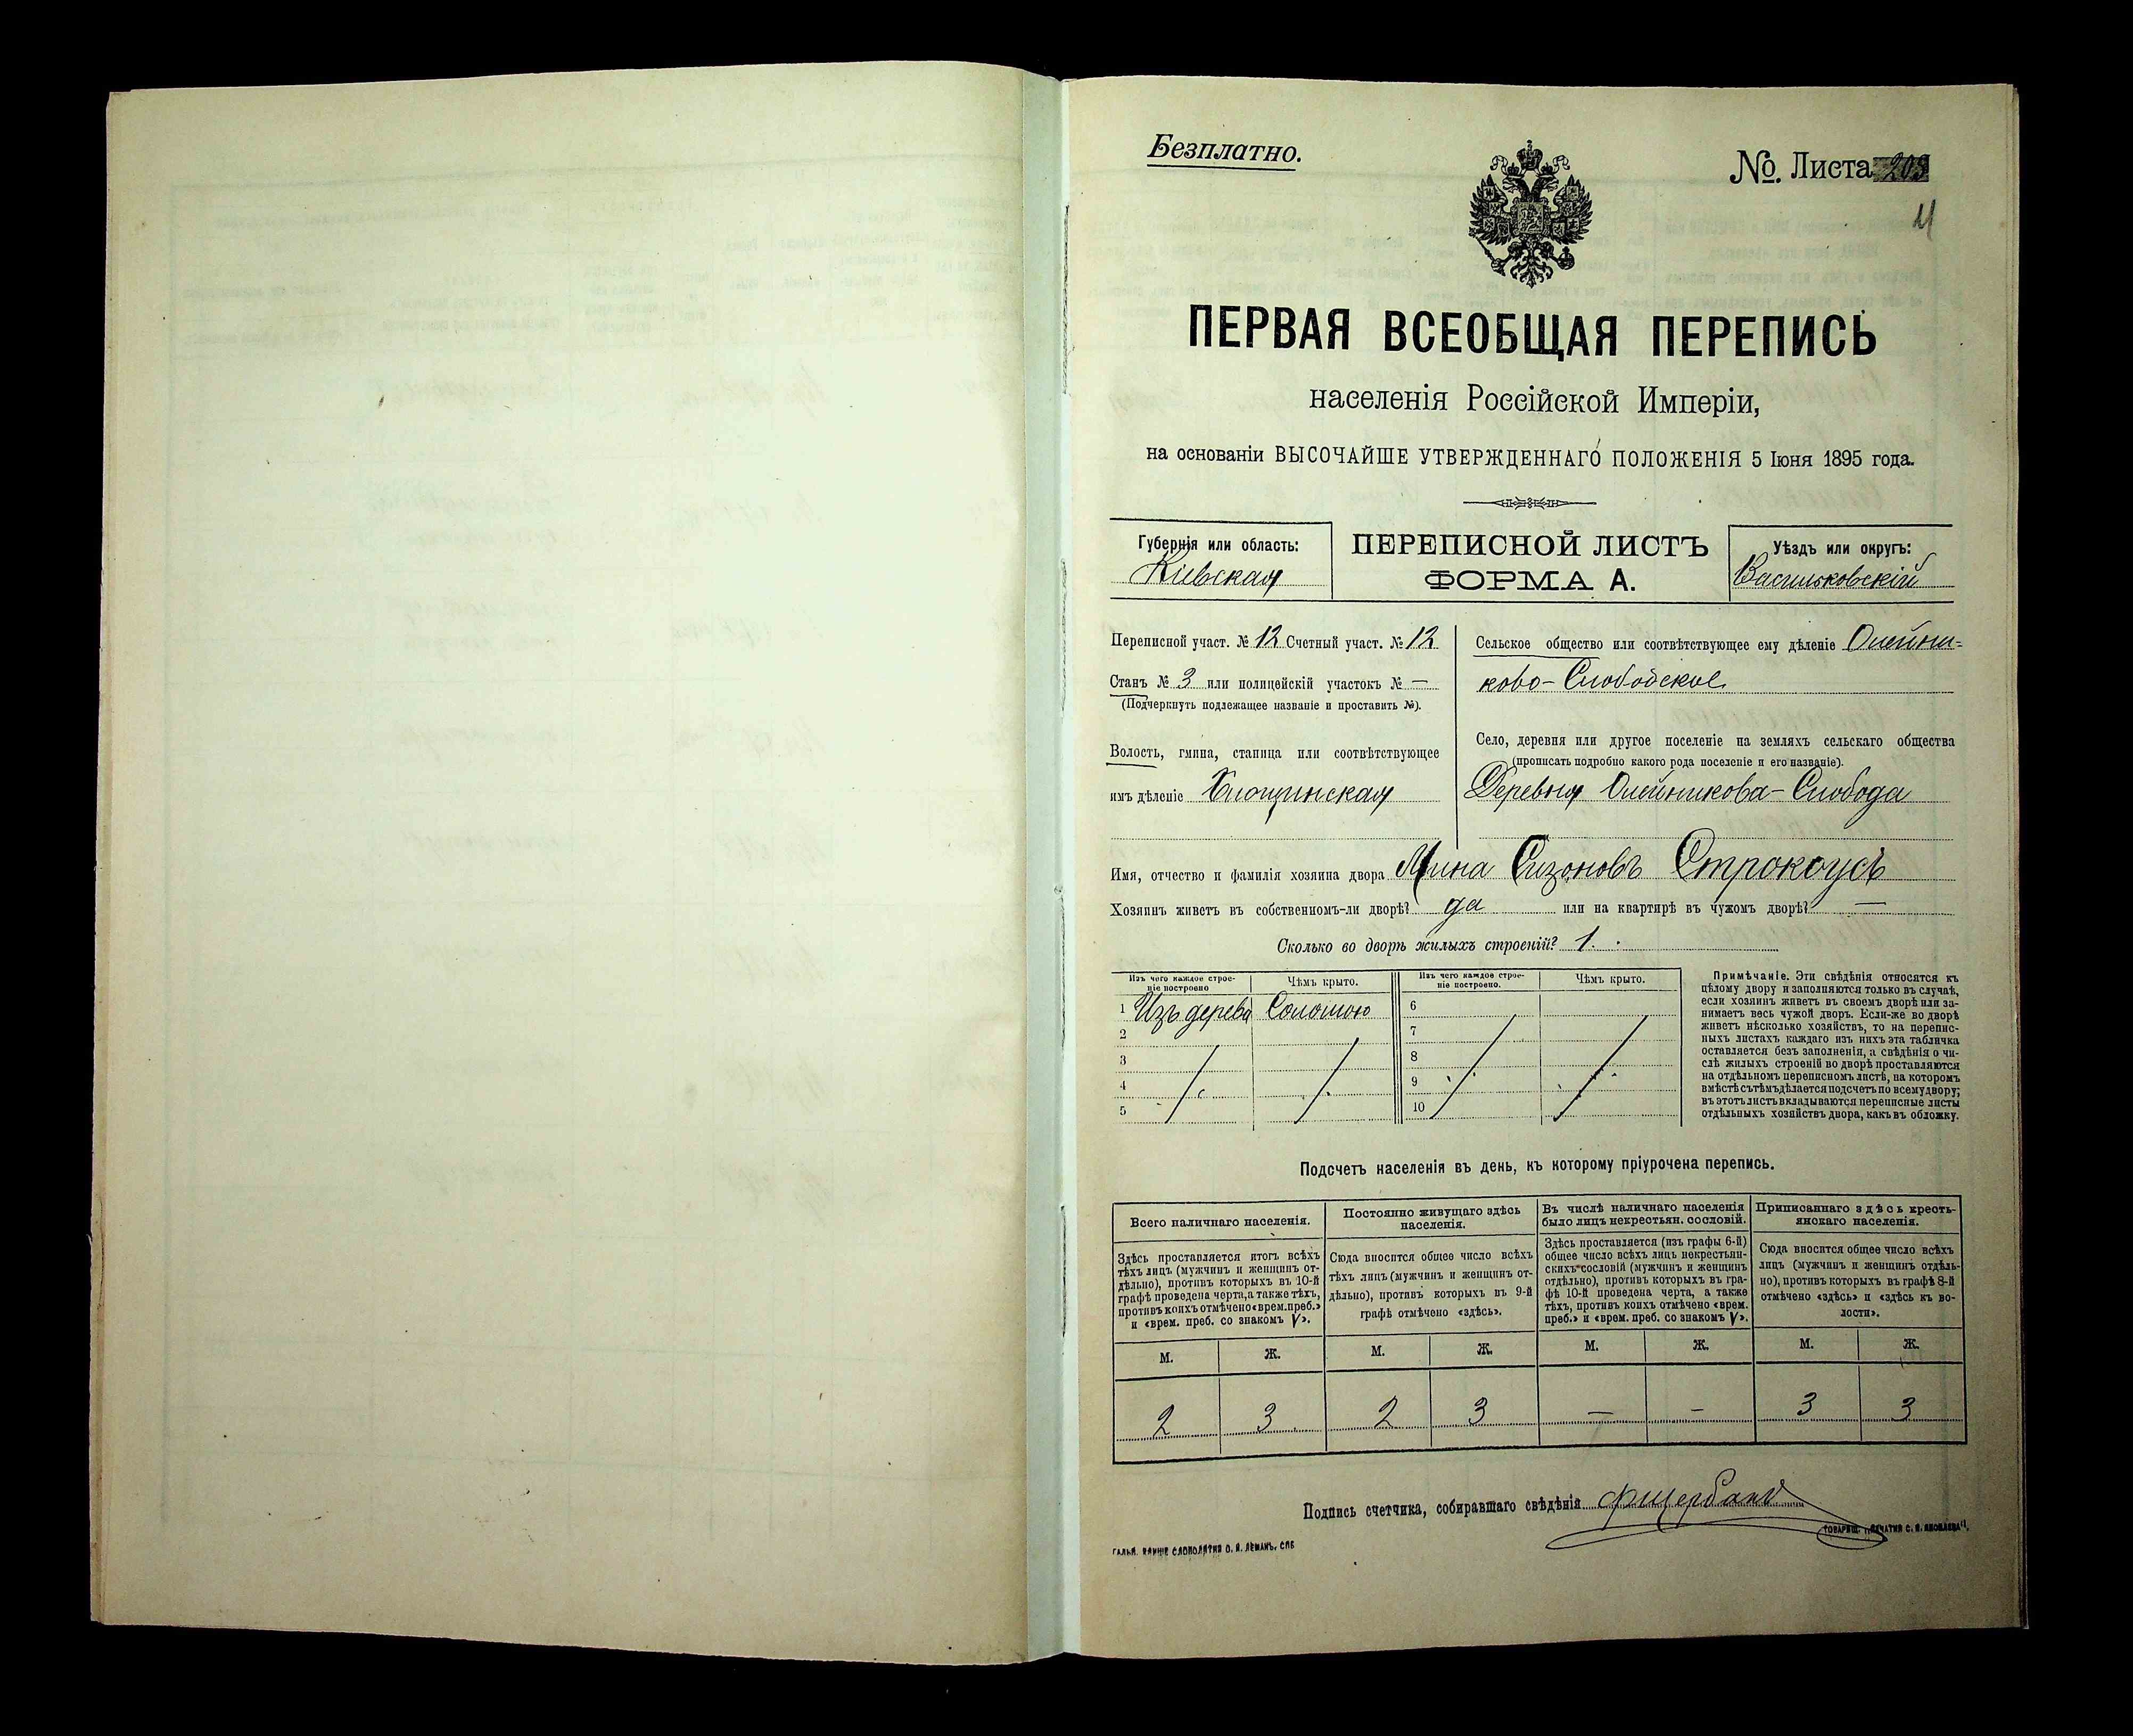 Безплатно.
No. Листа 203
11
ПЕРВАЯ ВСЕОБЩАЯ ПЕРЕПИСЬ
населенія Россійской Имперіи,
на основаніи ВЫСОЧАЙШЕ УТВЕРЖДЕННАГО ПОЛОЖЕНІЯ 5 Іюня 1895 года.
Губернія или область:
Кіевская
ПЕРЕПИСНОЙ ЛИСТЪ
ФОРМА А.
Уѣздъ или округъ:
Васильковскій
Переписной участ. № 12 Счетный участ. № 12
Станъ № 3 или полицейскій участокъ № —
(Подчеркнуть подлежащее названіе и проставить №).
Волость, гмина, станица или соотвѣтствующее
имъ дѣленіе
Сельское общество или соотвѣтствующее ему дѣленіе Олейни-
ково-Слободское
Село, деревня или другое поселеніе на земляхъ сельскаго общества
(прописать подробно какого рода поселеніе и его названіе).
Деревня Олейникова-Слобода
Имя, отчество и фамилія хозяина двора Мина Сизоновъ Строкоусъ
Хозяинъ живетъ въ собственномъ-ли дворѣ? да или на квартирѣ въ чужомъ дворѣ? —
Сколько во дворѣ жилыхъ строеній? 1.
Изъ чего каждое строе-
ніе построено
Чѣмъ крыто.
Изъ чего каждое строе-
ніе построено.
Чѣмъ крыто.
1 Изъ дерева Соломою 6
2 7
3 8
4 9
5 10
Примѣчаніе. Эти свѣдѣнія относятся къ
цѣлому двору и заполняются только въ случаѣ,
если хозяинъ живетъ въ своемъ дворѣ или за-
нимаетъ весь чужой дворъ. Если-же во дворѣ
живетъ нѣсколько хозяйствъ, то на перепис-
ныхъ листахъ каждаго изъ нихъ эта табличка
оставляется безъ заполненія, а свѣдѣнія о чи-
слѣ жилыхъ строеній во дворѣ проставляются
на отдѣльномъ переписномъ листѣ, на которомъ
вмѣстѣ съ тѣмъ дѣлается подсчетъ по всему двору;
въ этотъ листъ вкладываются переписные листы
отдѣльныхъ хозяйствъ двора, какъ въ обложку.
Подсчетъ населенія въ день, къ которому пріурочена перепись.
Всего наличнаго населенія.
Здѣсь проставляется итогъ всѣхъ
тѣхъ лицъ (мужчинъ и женщинъ от-
дѣльно), противъ которыхъ въ 10-й
графѣ проведена черта, а также тѣхъ,
противъ коихъ отмѣчено «врем. преб.»
и «врем. преб. со знакомъ V».
Постоянно живущаго здѣсь
населенія.
Сюда вносится общее число всѣхъ
тѣхъ лицъ (мужчинъ и женщинъ от-
дѣльно), противъ которыхъ въ 9-й
графѣ отмѣчено «здѣсь».
Въ числѣ наличнаго населенія
было лицъ некрестьян. сословій.
Здѣсь проставляется (изъ графы 6-й)
общее число всѣхъ лицъ некрестьян-
скихъ сословій (мужчинъ и женщинъ
отдѣльно), противъ которыхъ въ гра-
фѣ 10-й проведена черта, а также
тѣхъ, противъ коихъ отмѣчено «врем.
преб.» и «врем. преб. со знакомъ V».
Приписаннаго здѣсь кресть-
янскаго населенія.
Сюда вносится общее число всѣхъ
лицъ (мужчинъ и женщинъ отдѣль-
но), противъ которыхъ въ графѣ 8-й
отмѣчено «здѣсь» и «здѣсь къ во-
лости».
М. Ж. М. Ж. М. Ж. М. Ж.
2 3 2 3 — — 3 3
Подпись счетчика, собиравшаго свѣдѣнія